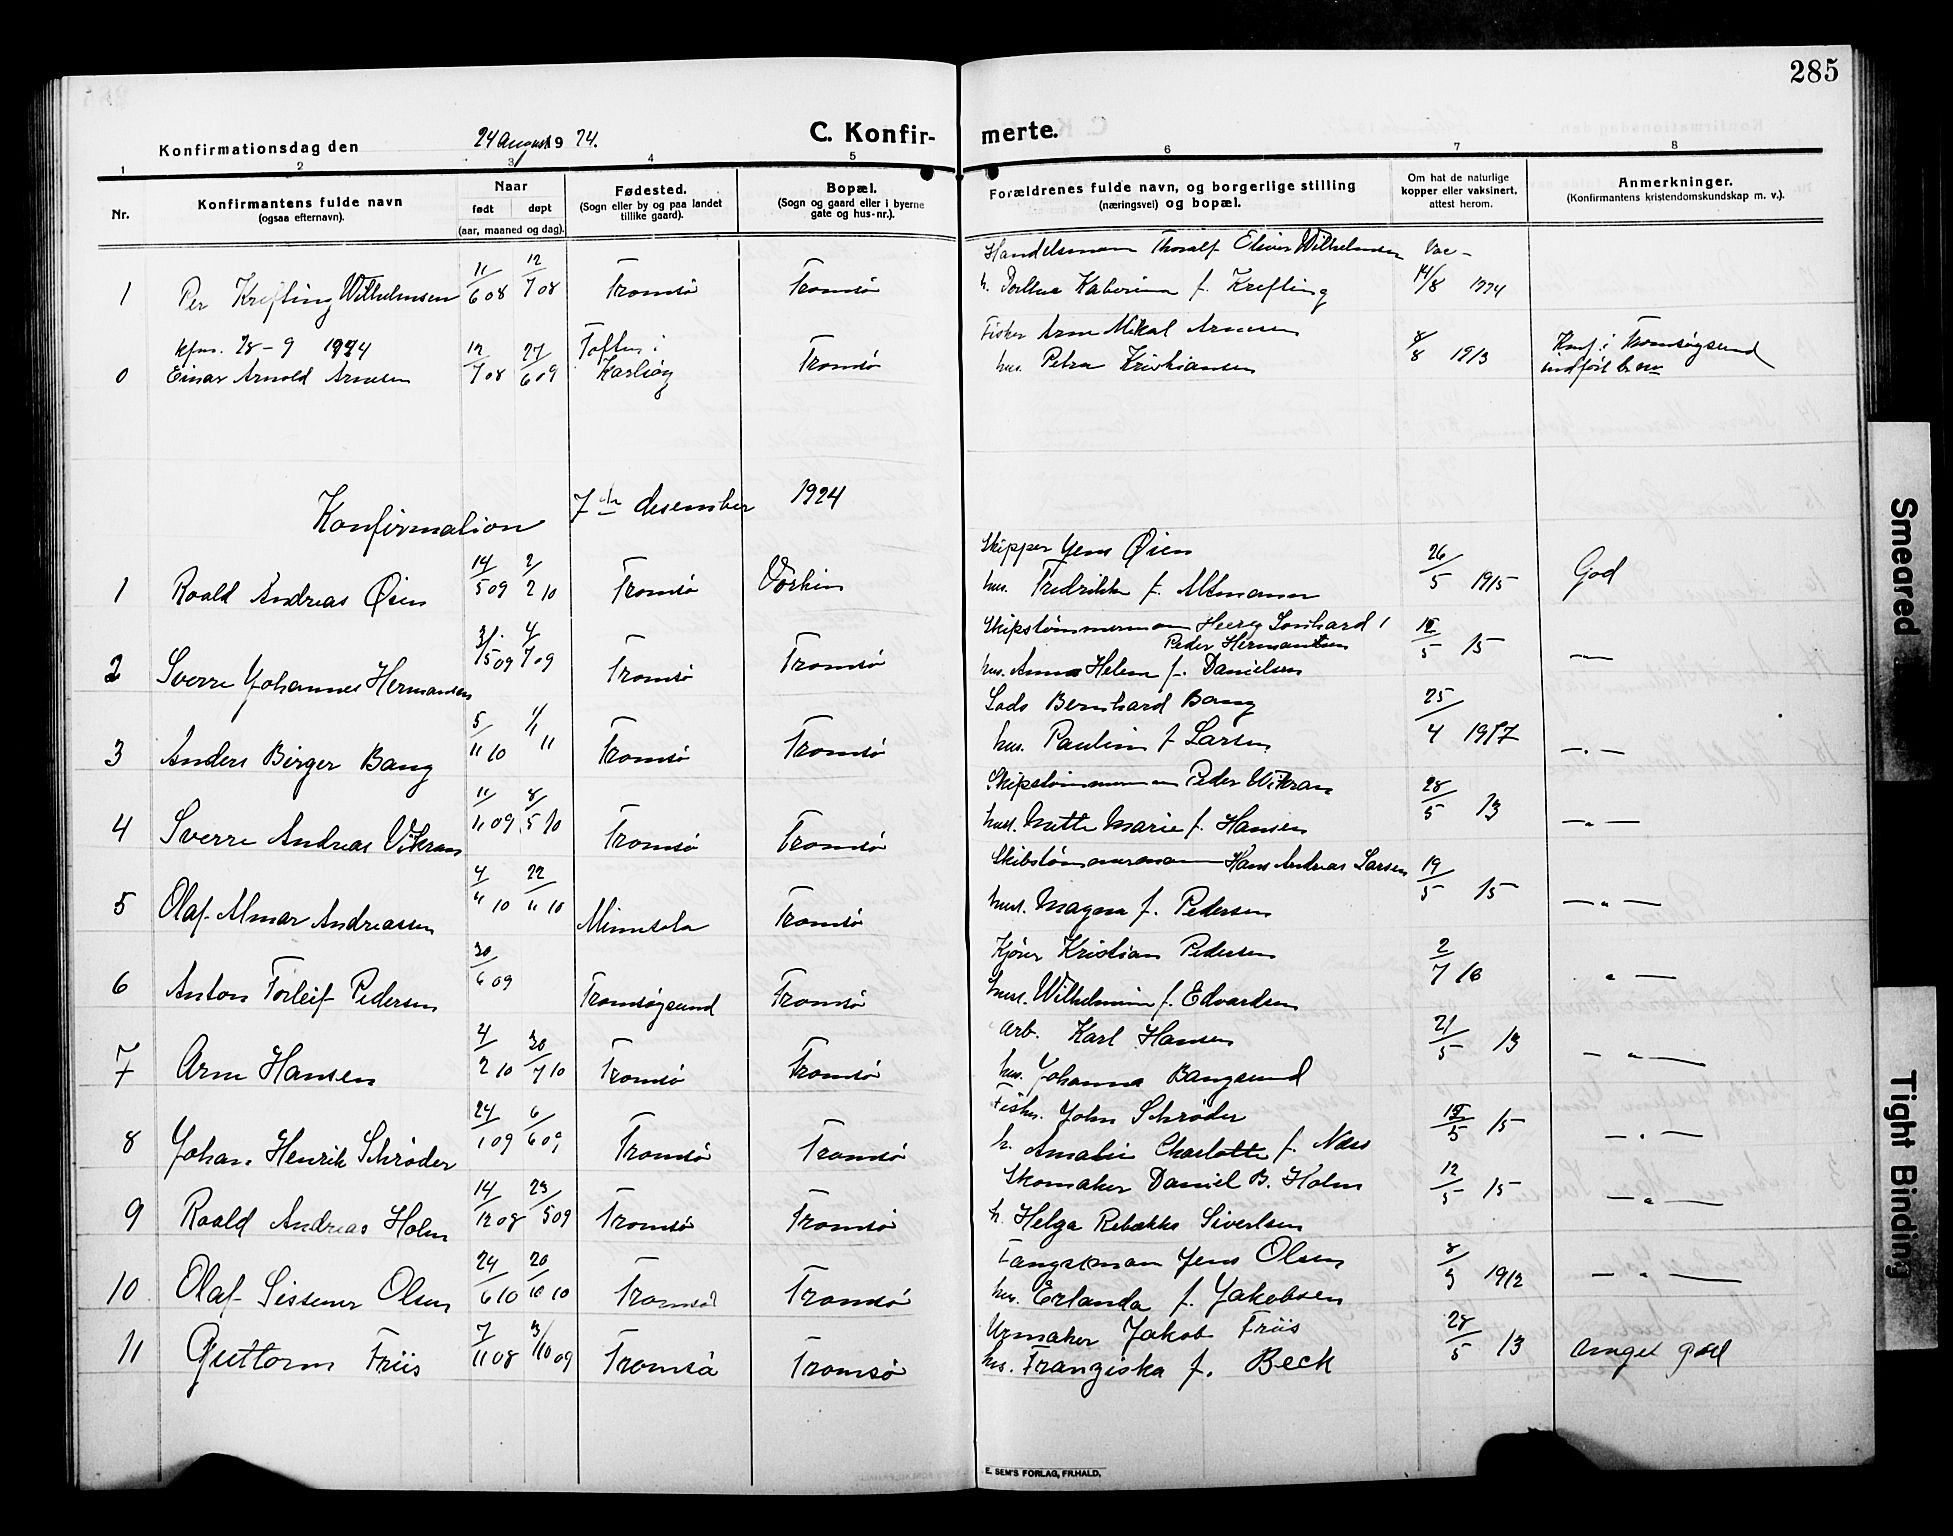 285
Konfirmationsdag den 24 August 1924.
C. Konfirmerte.
1 2 3 4 5 6 7 8
Nr.
Konfirmantens fulde navn
(ogsaa efternavn).
Naar
født døpt
(aar, maaned og dag).
Fødested.
(Sogn eller by og paa landet
tillike gaard).
Bopæl.
(Sogn og gaard eller i byerne
gate og hus-nr.).
Forældrenes fulde navn, og borgerlige stilling
(næringsvei) og bopæl.
Om hat de naturlige
kopper eller vaksinert,
attest herom.
Anmerkninger.
(Konfirmantens kristendomskundskap m. v.).
Handelsmann Thoralf Wilhelmsen Vac -
1 Per Krefting Wilhelmsen 11/6 08 12/7 08 Tromsø Tromsø h. Katerina f. Krefting 14/8 1924
kfm. 28-9 1924
Fisker Arne Mikal Arnesen
0 Einar Arnold Arnesen 12/7 08 27/6 09 Karlsøy Tromsø hus. Petra Kristiansen 8/8 1913 Knf. i Tromsøysund
Konfirmation 7de desember 1924
Skipper Jens Øien
1 Roald Andreas Øien 14/5 09 2/2 10 Tromsø hus. Fredrikke f. Altmann 26/5 1915 God
Skipstømmermann
Peder Hermansen
2 Sverre Johannes Hermansen 31/5 09 4/7 09 Tromsø Tromsø hus. Anna Helene f. Danielsen 12/5 15 - " -
Lods Bernhard Bang
3 Anders Birger Bang 5/11 10 1/1 11 Tromsø Tromsø hus. Pauline f Larsen 25/4 1917 - " -
Skipstømmermann Peder Vikran
4 Sverre Andreas Vikran 11/11 09 8/5 10 Tromsø Tromsø hust. Mette Marie f. Hansen 28/5 13 - " -
Skibstømmermann Hans Andreas Larsen
5 Olaf Almar Andreassen 4/4 10 22/4 10 Minnesota Tromsø hust. Magna f. Pedersen 19/5 15 - " -
Kjører Kristian Pedersen
6 Anton Torleif Pedersen 30/6 09 Tromsøysund Tromsø hust. Wilhelmine f. Edvardsen 2/7 16 " -
Arb. Karl Hansen
7 Arne Hansen 4/2 10 30/7 10 Tromsø Tromsø hus. Johanna Bangsund 21/5 13 - " -
Fisker. John Schrøder
8 Johan Henrik Schrøder 24/1 09 6/6 09 Tromsø Tromsø h. Amalie Charlotte f. Næss 15/5 15 - " -
Skomaker Daniel B. Holm
9 Roald Andreas Holm 14/12 08 23/5 09 Tromsø Tromsø h. Helga Rebekka Sivertsen 12/5 15 - " -
Fangstman Jens Olsen
10 Olaf Sissener Olsen 24/6 10 20/10 10 Tromsø Tromsø hus. Erlanda f. Jakobsen 8/9 1912 - " -
Urmaker Jakob Friis
11 Guttorm Friis 7/11 08 3/10 09 Tromsø Tromsø hus. Franziska f. Beck 28/5 13 Meget god
E. SEM'S FORLAG, FR.HALD.
Smeared
Tight Binding